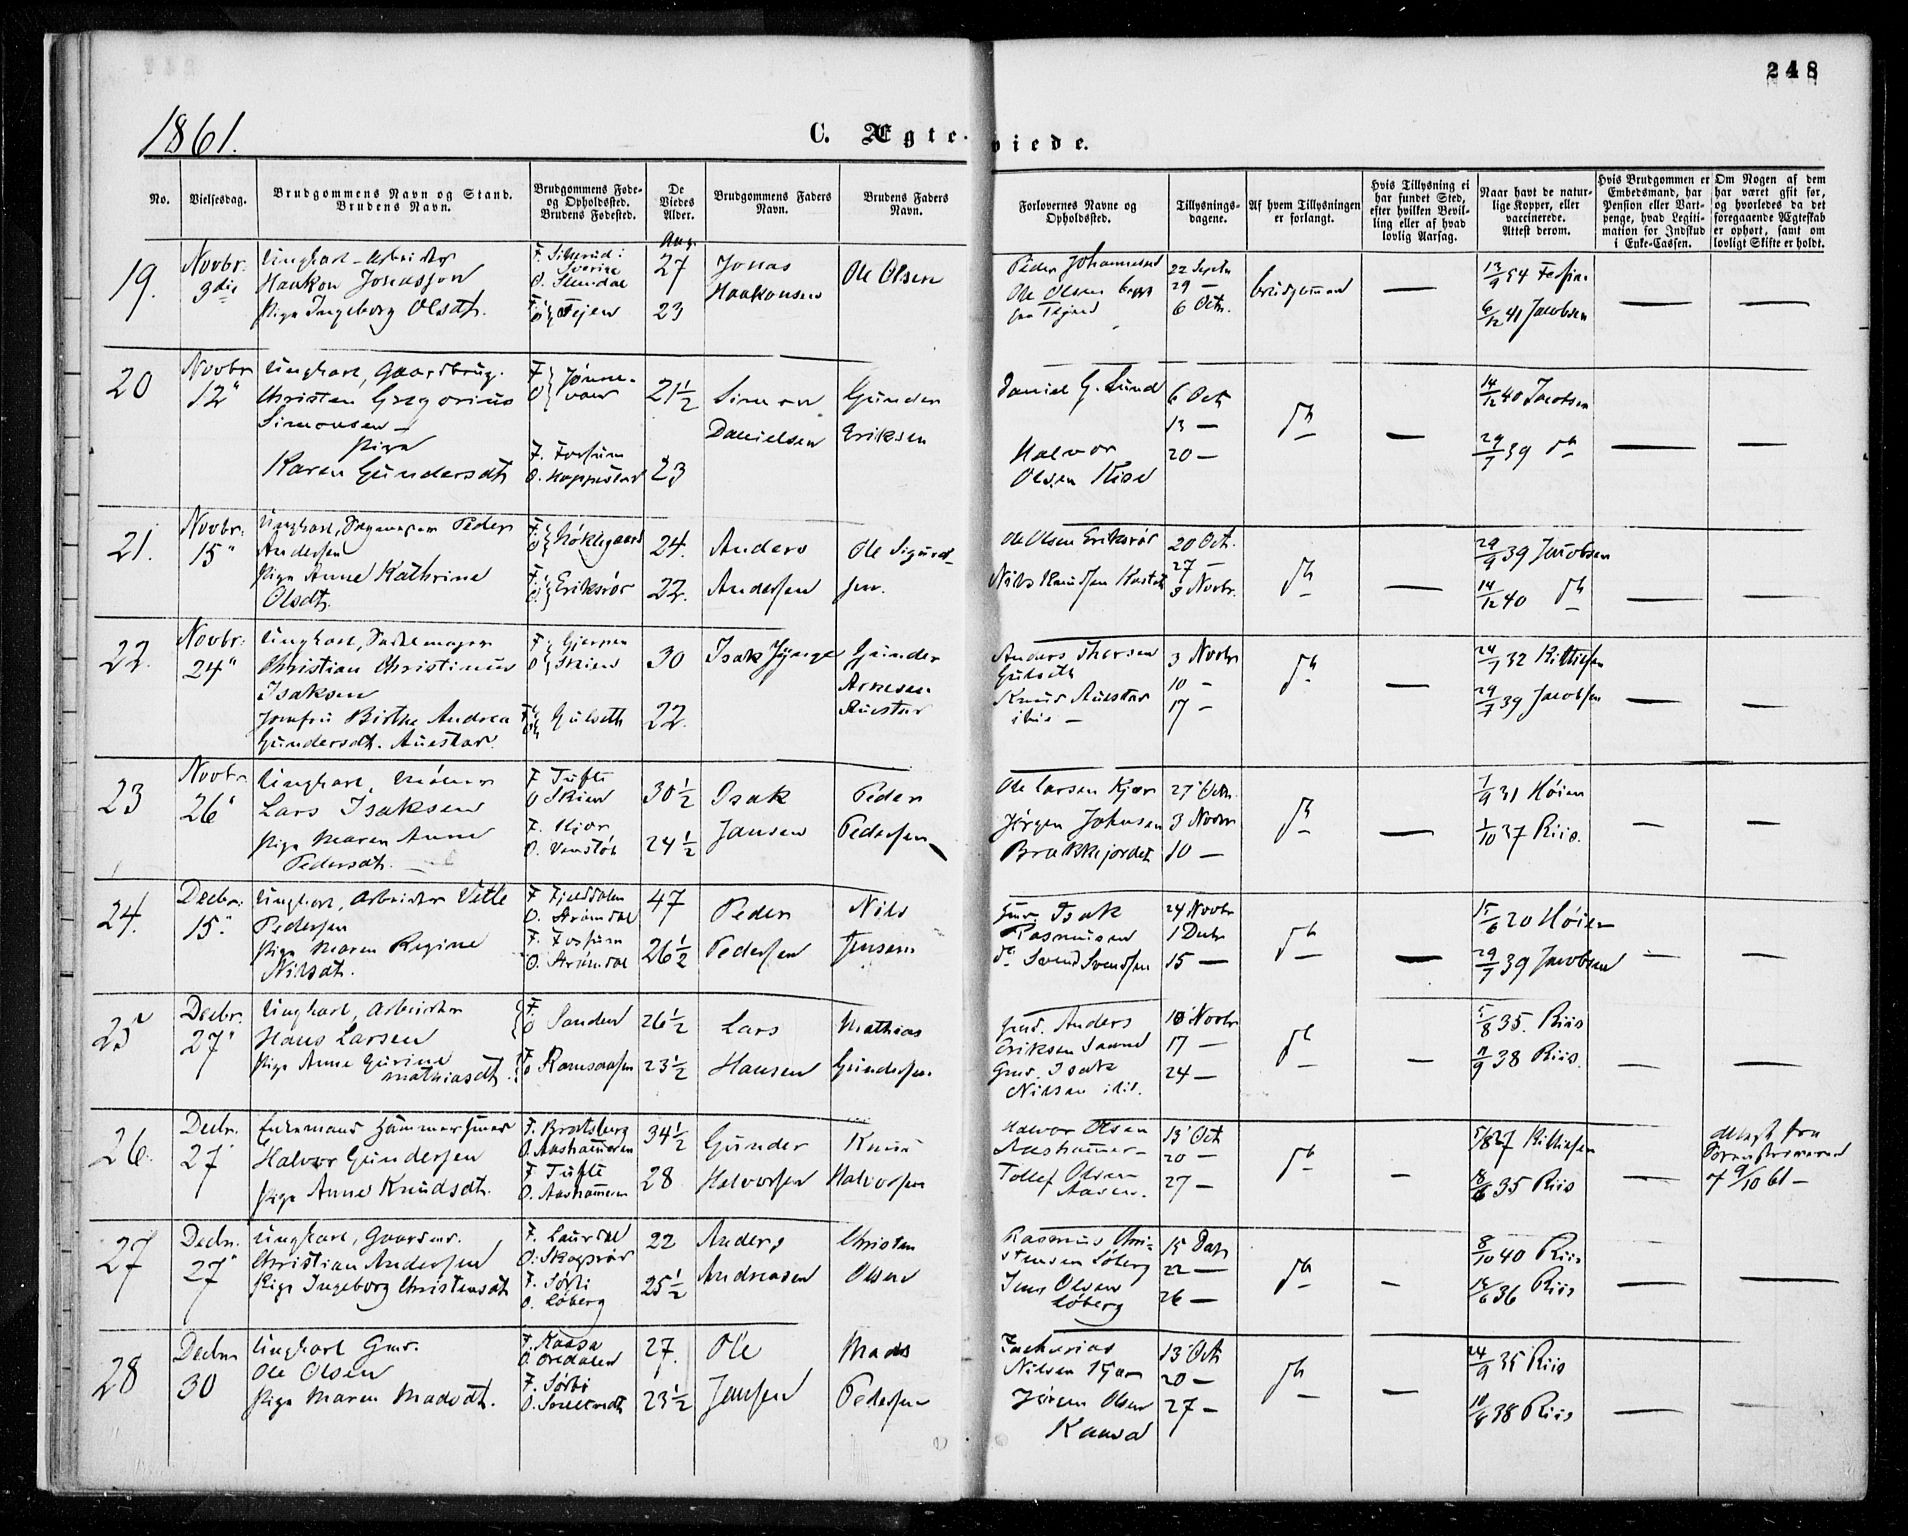 248
1861.
C. Ægteviede.
No.
Vielsesdag.
Brudgommens Navn og Stand.
Brudens Navn.
Brudgommens Føde-
og Opholdssted.
Brudens Fødested.
De
Viedes
Alder.
Brudgommens Faders
Navn.
Brudens Faders
Navn.
Forlovernes Navne og
Opholdssted.
Tillysnings-
dagene.
Af hvem Tillysningen
er forlangt.
Hvis Tillysning ei
har fundet Sted,
efter hvilken Bevil-
ling eller af hvad
lovlig Aarsag.
Naar havt de natur-
lige Kopper, eller
vaccinerede.
Attest derom.
Hvis Brudgommen er
Embedsmand, har
Pension eller Vart-
penge, hvad Legiti-
mation for Indskud
i Enke-Cassen.
Om Nogen af dem
har været gift før,
og hvorledes da det
foregaaende Ægteskab
er ophørt, samt om
lovligt Skifte er holdt.
19.
Novbr.
3die
Ungkarl Arbeider
Haakon Jonasson
Pige Ingeborg Olsdt.
Sverige
27
23
Jonas
Haakonsen
Ole Olsen
Peder Johannesen
Ole Olsen
22 Septr
29 —
6 Octr.
brudgommen
13/9 54
6/12 41 Jacobsen
20
Novbr
12"
Ungkarl, Gaardbrug.
Christen Gregorius
Simonsen —
Pige
Karen Gundersdt
F. Fossum
21½
23
Simon
Danielsen
Gunder
Eriksen
Daniel G. Lund
Halvor
Olsen Kise
6 Octr
13 —
20 —
14/12 40 Jacobsen
29/7 39 do
21.
Novbr.
15"
Ungkarl, Peder
Andersen
Pige Anne Kathrine
Olsdt.
Eriksrør
24.
22.
Anders
Andersen
Ole Sigurd-
sen.
Ole Olsen Eriksrør
Nils Knudsen
20 Oct.
27 —
3 Novbr.
do
29/9 39 Jacobsen
14/12 40 do
22.
Novbr.
24"
Ungkarl,
Christian Christinius
Isaksen
Jomfru Birthe Andrea
Gundersdt. Auestad.
F Gjerpen
O Skien
Gulseth
30
22.
Isak
Gunder
Arnesen
Auestad
Anders Thorsen
Gulseth
Knud Auestad
ibid —
3 Novbr
10 —
17 —
do
24/7 32
29/7 39 Jacobsen
23
Novbr
26"
Ungkarl,
Lars Isaksen
Pige Maren Anne
Pedersdt.
F Tufte
O Skien
F. Kjær
O. Venstøb
30½
24½
Isak
Jansen
Peder
Pedersen
Ole Larsen Kjær
Jørgen Johnsen
Brakkejordet
27 Octr.
3 Novbr
10 —
do
1/9 31 Høien
1/10 37 Riis.
24.
Decbr.
15."
Ungkarl, Arbeider Vetle
Pedersen
Pige Maren Regine
Nilsdt.
F Fjelddalen
O. Strømdal
F. Fossum
O. Strømdal
47
26½
Peder
Pedersen
Nils
Jensen
Gmd. Isak
Rasmusen
do Svend Svendsen
24 Novbr
1 Decbr
15 —
do
15/6 20 Høien
29/7 39 Jacobsen
25
Decbr.
27"
Ungkarl, Arbeider
Hans Larsen
Pige Anne Gurine
Mathiasdt.
Sanden
Ramsaasen
26½
23½
Lars
Hansen
Mathias
Gundersen
Gmd. Anders
Eriksen Sanne
Gmd. Isak
Nilsen ibid.
10 Novbr
17 —
24 —
do
5/8 35. Riis
9/9 38 Riis.
26.
Decbr.
27
Enkemand Hammersmed
Halvor Gundersen
Pige Anne Knudsdt.
F. Bratsberg
O. Aashammeren
F Tufte
O. Aashammeren
34½
28
Gunder
Halvorsen
Knud
Halvorsen
Halvor Olsen
Aashammer-
Tollef Olsen
Aasen.
13 Oct
20 —
27 —
do
18/6 35 Riis
Attest fra
af 9/10 61 —
27
Decbr.
27"
Ungkarl, Gaardmd.
Christian Andersen
Pige Ingeborg Christensdt
F. Laurdal
F. Sørbi
O. Løberg
22
25½
Anders
Andreasen
Christen
Olsen
Rasmus Chri-
stensen Løberg
Jens Olsen
Løberg
15 Decbr
22 —
26 —
do
8/10 40 Riis
14/6 36 Riis
28
Decbr
30
Ungkarl Gmd.
Ole Olsen
Pige Maren Madsdt.
F. Kaasa
F. Sørbi
27.
23½
Ole
Jensen
Mads
Pedersen
Zacharias
Nilsen Kjær
Jørgen Olsen
Kaasa
13 Oct
20 —
27 —
do
24/9 35 Riis
10/8 38 Riis